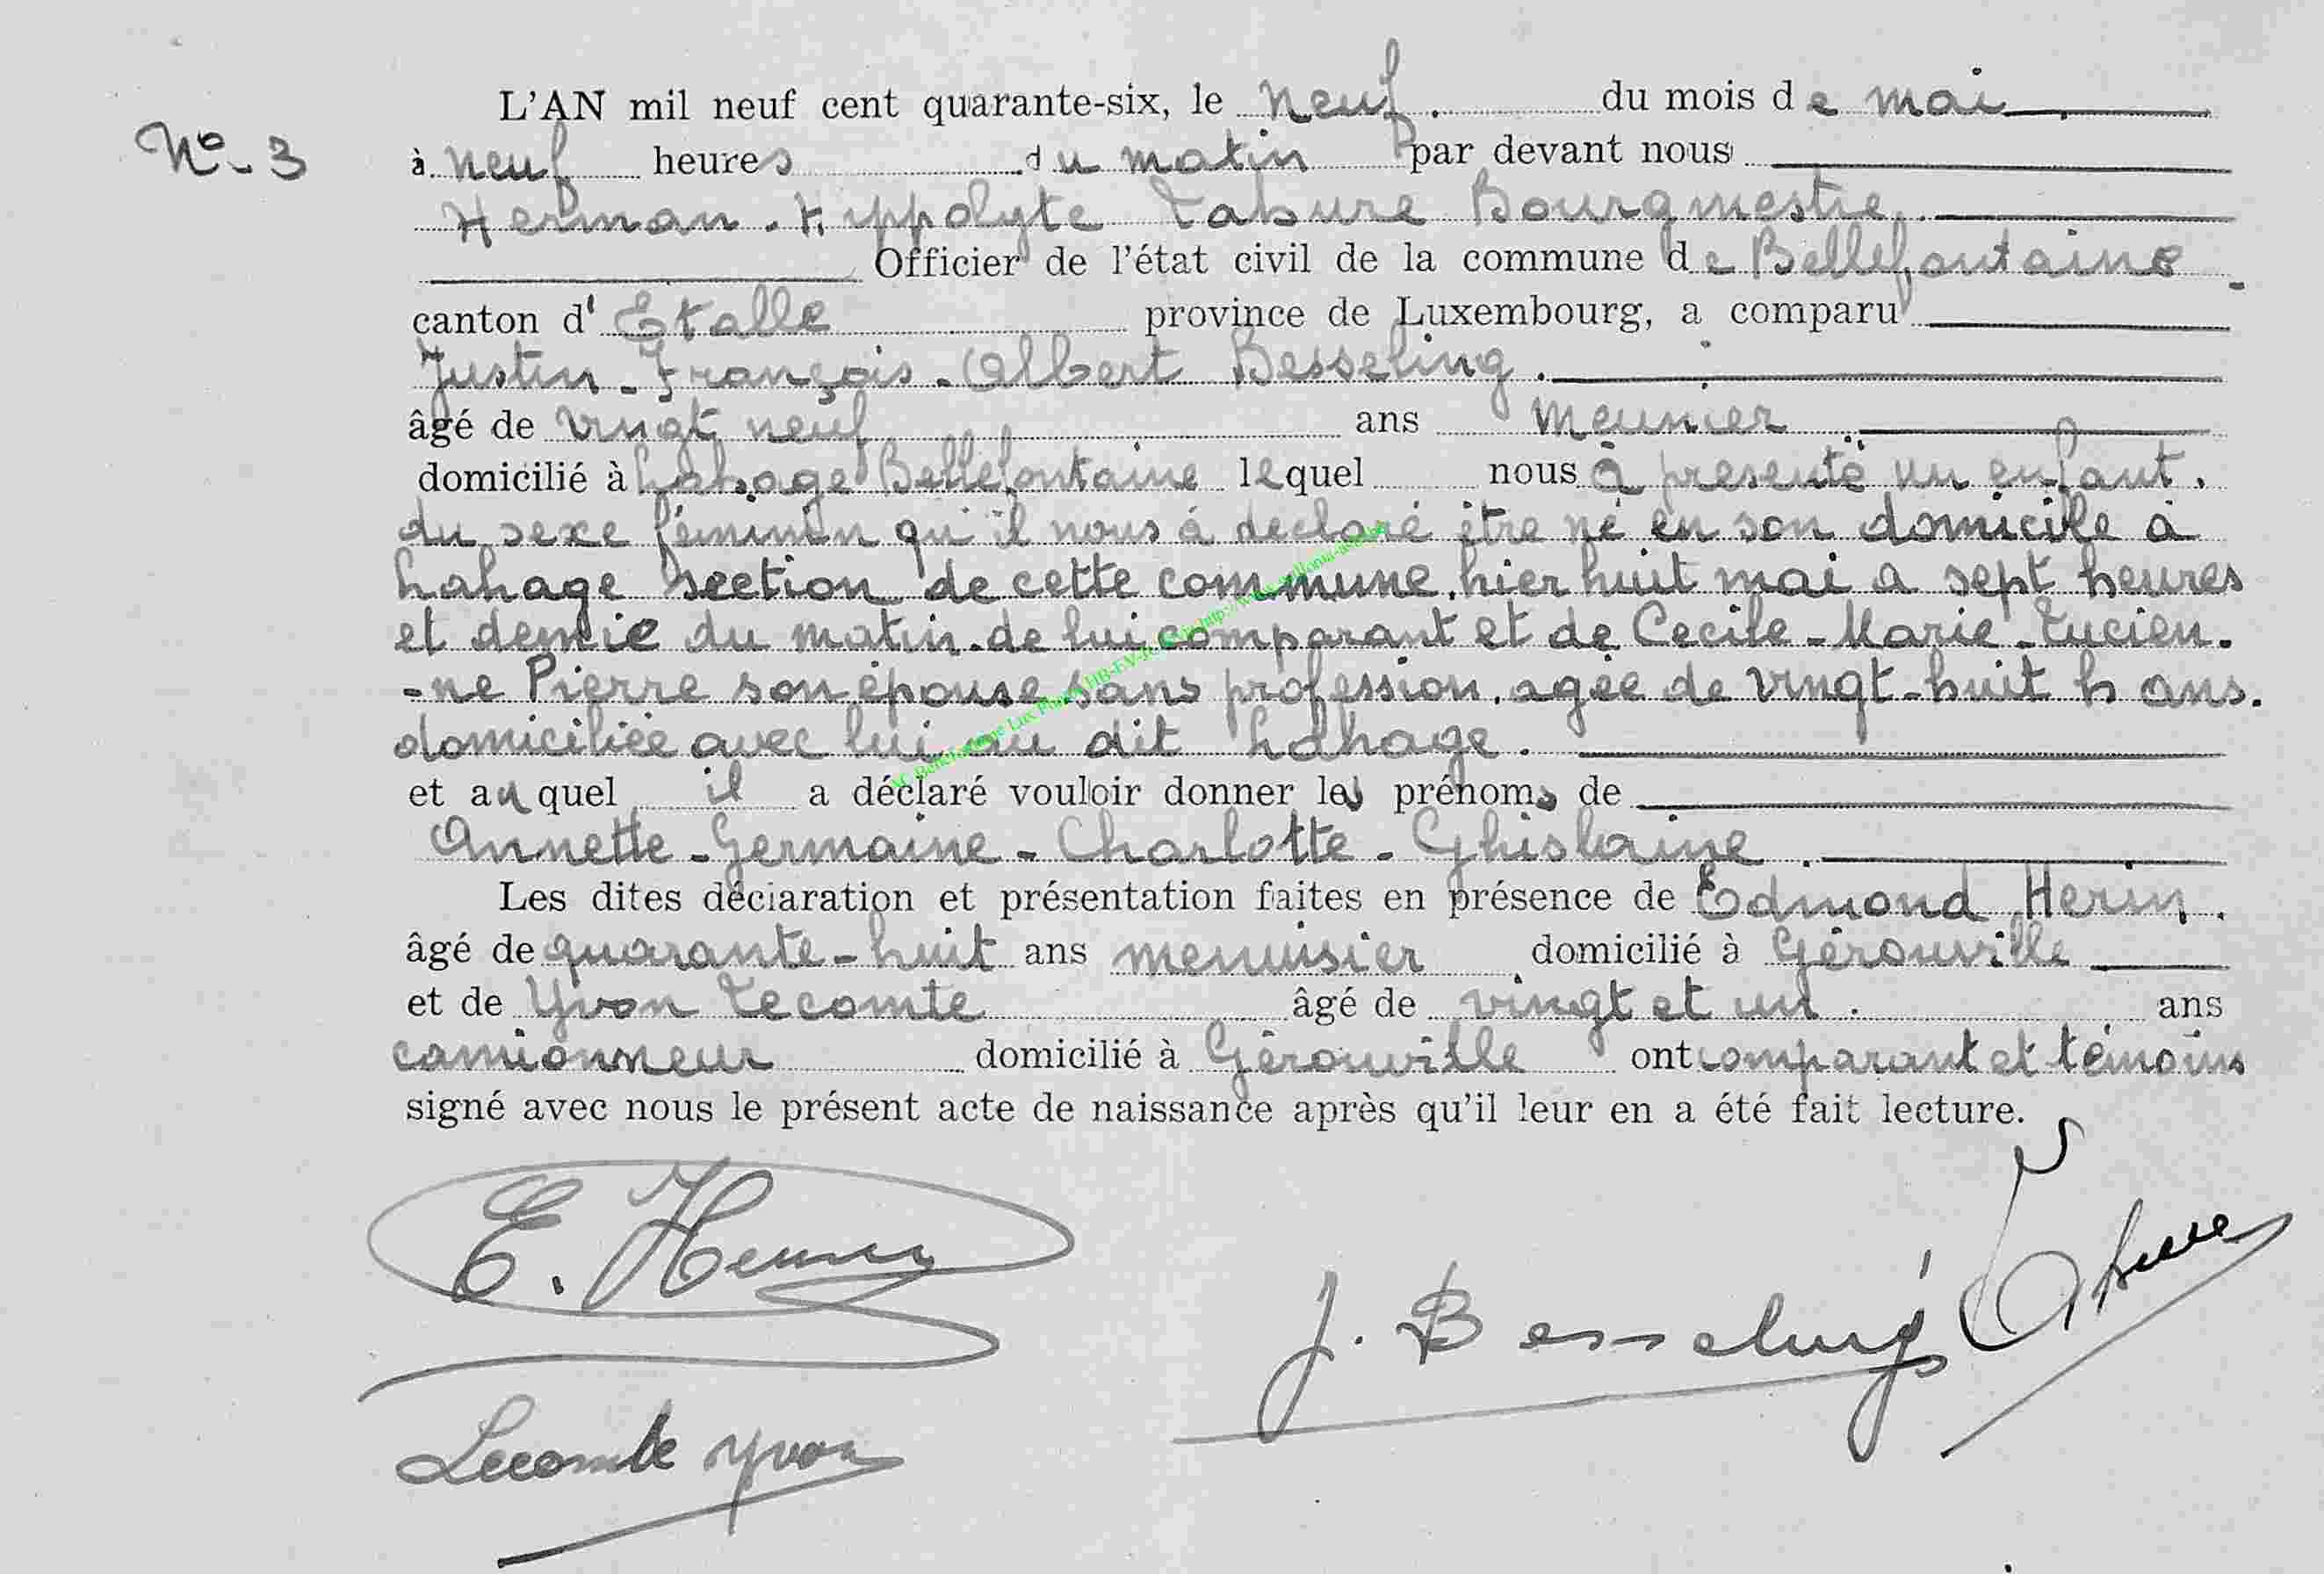 L'AN mil neuf cent quarante-six, le neuf. du mois de mai
No - 3
à neuf heures du matin par devant nous
Herman - Hippolyte Labure Bourgmestre
Officier de l'état civil de la commune de Bellefontaine
canton d' Etalle province de Luxembourg, a comparu
Justin - François - Albert Besseling.
âgé de vingt neuf ans meunier
domicilié à Lahage Bellefontaine lequel nous à presenté un enfant.
du sexe féminin qu'il nous à declaré être né en son domicile à
Lahage section de cette commune, hier huit mai a sept heures
et demie du matin. de lui comparant et de Cecile - Marie - Lucien-
-ne Pierre son épouse sans profession, agée de vingt-huit h ans.
domiciliée avec lui au dit Lahage.
et auquel il a déclaré vouloir donner les prénoms de
Annette - Germaine - Charlotte - Ghislaine.
Les dites déclaration et présentation faites en présence de Edmond Herin.
âgé de quarante-huit ans menuisier domicilié à Gérouville
et de Yvon Lecomte âgé de vingt et un. ans
camionneur domicilié à Gérouville ont comparant et témoins
signé avec nous le présent acte de naissance après qu'il leur en a été fait lecture.
J. Besseling
Lecomte Yvon